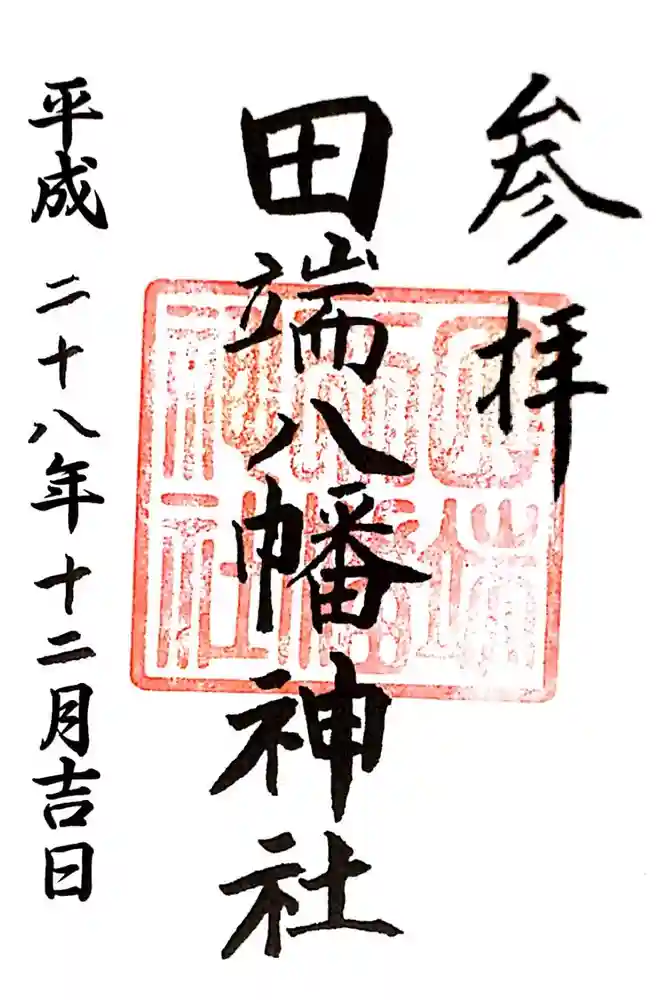 参拝
田端八幡神社
平成二十八年十二月吉日
田端八幡神社